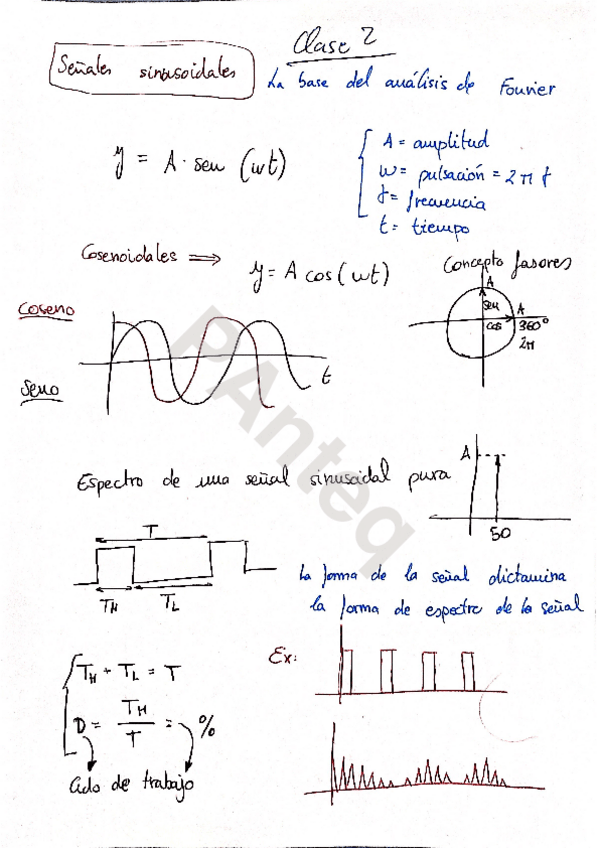 Clase 2
Señales sinusoidales
La base del análisis de Fourier
y = A · sen (wt)
A = amplitud
w = pulsación = 2π f
f = frecuencia
t = tiempo
Cosenoidales ⟹ y = A cos (wt)
Concepto fasores
A
sen
cos
A
360°
2π
Coseno
Seno
t
PAnteq
Espectro de una señal sinusoidal pura
A
50
T
TH
TL
La forma de la señal dictamina
la forma de espectro de la señal
TH + TL = T
D = TH / T = %
Ciclo de trabajo
Ex: